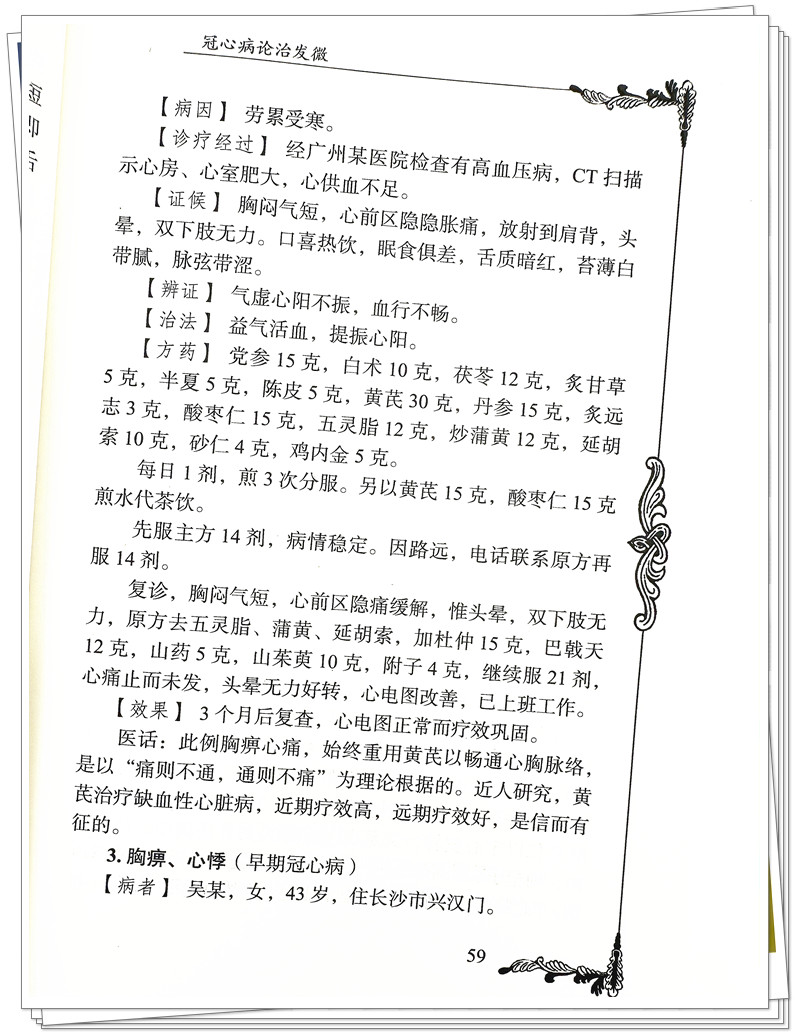 冠心病论治发微
【病因】 劳累受寒。
【诊疗经过】 经广州某医院检查有高血压病，CT 扫描
示心房、心室肥大，心供血不足。
【证候】 胸闷气短，心前区隐隐胀痛，放射到肩背，头
晕，双下肢无力。口喜热饮，眠食俱差，舌质暗红，苔薄白
带腻，脉弦带涩。
【辨证】 气虚心阳不振，血行不畅。
【治法】 益气活血，提振心阳。
【方药】 党参 15 克，白术 10 克，茯苓 12 克，炙甘草
5 克，半夏 5 克，陈皮 5 克，黄芪 30 克，丹参 15 克，炙远
志 3 克，酸枣仁 15 克，五灵脂 12 克，炒蒲黄 12 克，延胡
索 10 克，砂仁 4 克，鸡内金 5 克。
每日 1 剂，煎 3 次分服。另以黄芪 15 克，酸枣仁 15 克
煎水代茶饮。
先服主方 14 剂，病情稳定。因路远，电话联系原方再
服 14 剂。
复诊，胸闷气短，心前区隐痛缓解，惟头晕，双下肢无
力，原方去五灵脂、蒲黄、延胡索，加杜仲 15 克，巴戟天
12 克，山药 5 克，山茱萸 10 克，附子 4 克，继续服 21 剂，
心痛止而未发，头晕无力好转，心电图改善，已上班工作。
【效果】 3 个月后复查，心电图正常而疗效巩固。
医话：此例胸痹心痛，始终重用黄芪以畅通心胸脉络，
是以“痛则不通，通则不痛”为理论根据的。近人研究，黄
芪治疗缺血性心脏病，近期疗效高，远期疗效好，是信而有
征的。
3. 胸痹、心悸（早期冠心病）
【病者】 吴某，女，43 岁，住长沙市兴汉门。
59